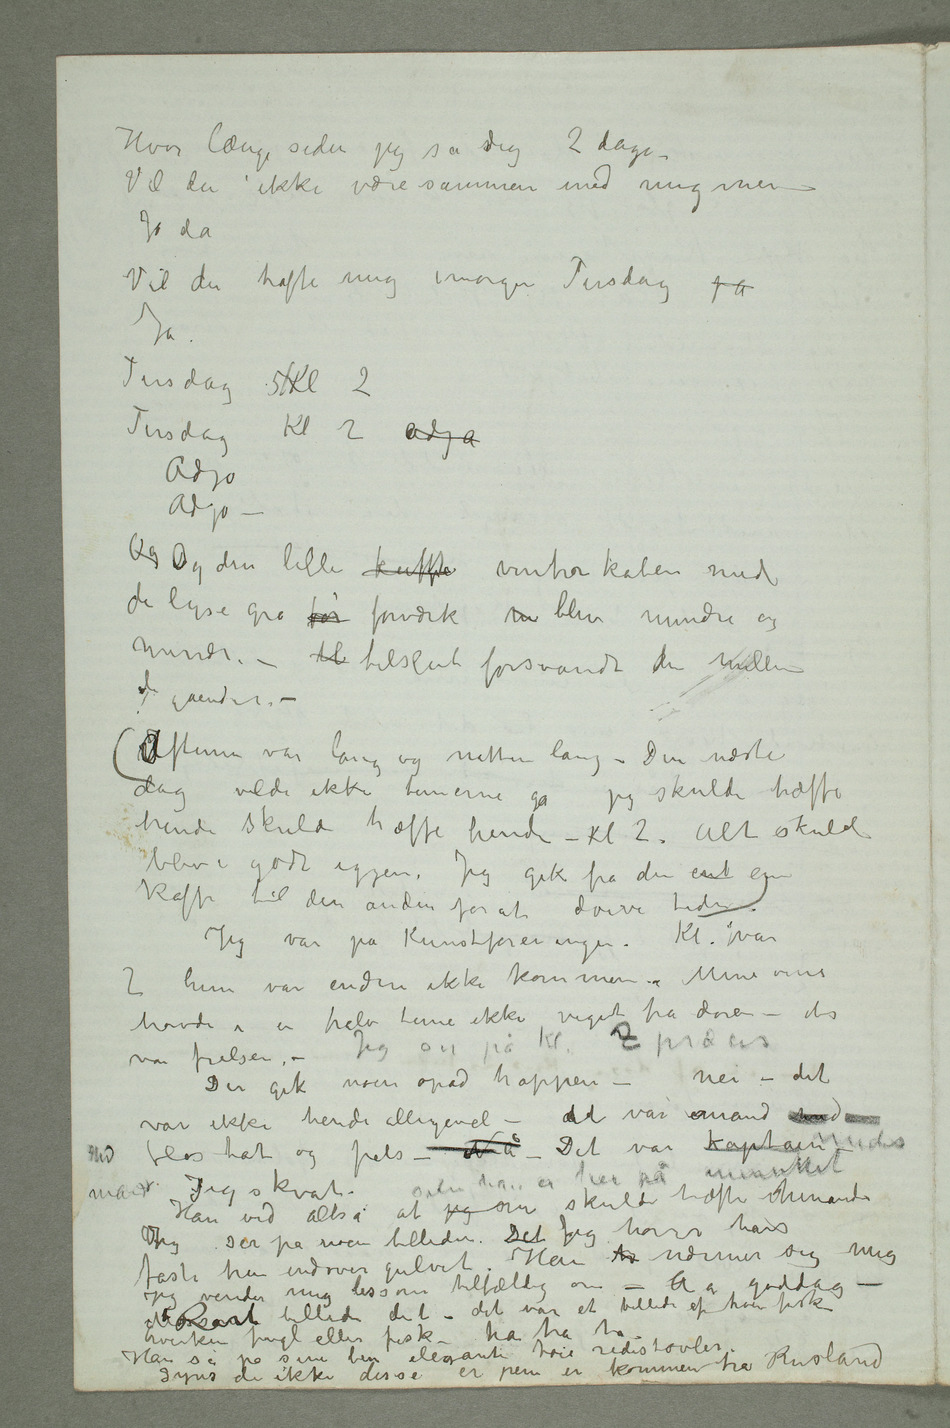 Hvor længe siden jeg så dig 2 dage –
Vil du ikke være sammen med mig mer –
Jo da
Vil du træffe mig imorgen Tirsdag på
Ja.
Tirsdag Kl 2
Tirsdag Kl 2 adja
Adjo
Adjo –
Og den lille kaffe vinterkåben med
de lyse grå for forværk blev mindre og
mindre. – til tilslut forsvandt den mellem
de gående. –
Aftenen var lang og natten lang – Den næste
dag vilde ikke timerne gå jeg skulde træffe
hende skulde træffe hende – Kl 2. Alt skulde
blive godt igjen. Jeg gik fra den ent ene
Kaffe til den anden for at drive tiden.
Jeg var på Kunstforeningen. Kl. var
2 hun var endnu ikke kommen. Mine øine
havde i en halv time ikke veget fra døren – des
var frelsen. – Jeg ser på Kl. 2 præcis
Der gik noen opad trappen – nei – det
var ikke hende alligevel – det var en mand med
flos hat og pels – Nå – Det var Kaptain hendes
mand Jeg skvat. siden han er her på minuttet
Han ved altså at jeg vi skulde træffe hinanden
Jeg ser på noen billeder. Det Jeg hører hans
faste trin indover gulvet. Han nærmer sig mig
Jeg vender mig lessom tilfældig om – A a goddag –
Rart billede det – det var et billede af
hverken fugl eller fisk – ha ha ha –
Han så på sine ben elegante høie ridestøvler.
Syns de ikke disse er pene er kommen fra Rusland